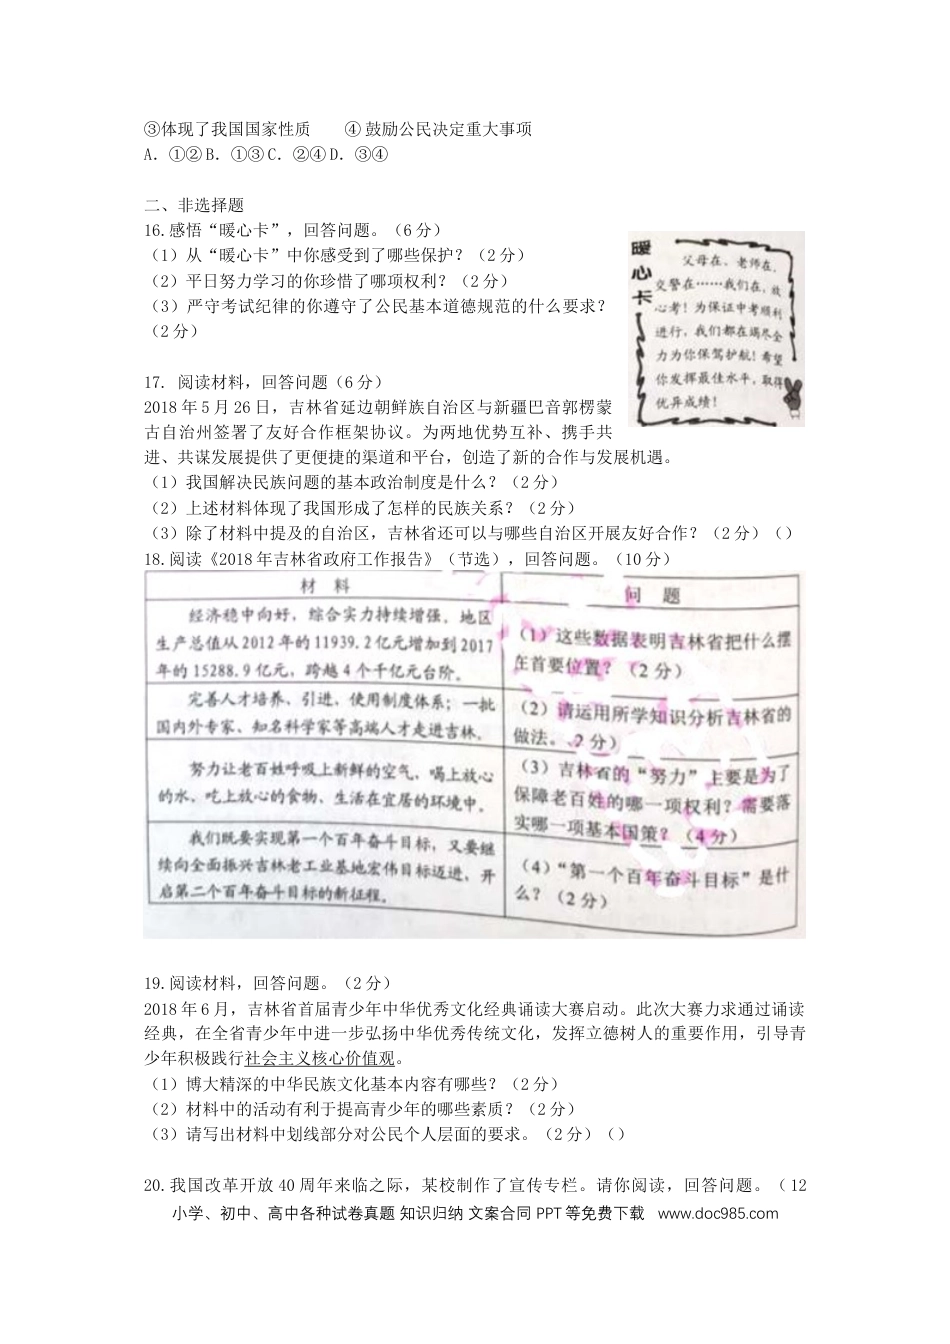 ③体现了我国国家性质 ④ 鼓励公民决定重大事项
A．①② B．①③ C．②④ D．③④
二、非选择题
16.感悟“暖心卡”，回答问题。（6 分）
（1）从“暖心卡”中你感受到了哪些保护？（2 分）
（2）平日努力学习的你珍惜了哪项权利？（2 分）
（3）严守考试纪律的你遵守了公民基本道德规范的什么要求？
（2 分）
暖心卡
父母在、老师在,
交警在……我们在，放
心考！为保证中考顺利
进行，我们都在竭尽全
力为你保驾护航！希望
你发挥最佳水平，取得
优异成绩！
17. 阅读材料，回答问题（6 分）
2018 年 5 月 26 日，吉林省延边朝鲜族自治区与新疆巴音郭楞蒙
古自治州签署了友好合作框架协议。为两地优势互补、携手共
进、共谋发展提供了更便捷的渠道和平台，创造了新的合作与发展机遇。
（1）我国解决民族问题的基本政治制度是什么？（2 分）
（2）上述材料体现了我国形成了怎样的民族关系？（2 分）
（3）除了材料中提及的自治区，吉林省还可以与哪些自治区开展友好合作？（2 分）（）
18.阅读《2018 年吉林省政府工作报告》（节选），回答问题。（10 分）
材 料
问 题
经济稳中向好，综合实力持续增强。地区
生产总值从 2012 年的 11939.2 亿元增加到 2017
年的 15288.9 亿元，跨越 4 个千亿元台阶。
（1）这些数据表明吉林省把什么摆
在首要位置？（2 分）
完善人才培养、引进、使用制度体系；一批
国内外专家、知名科学家等高端人才走进吉林。
（2）请运用所学知识分析吉林省的
做法。 2 分）
努力让老百姓呼吸上新鲜的空气，喝上放心
的水、吃上放心的食物、生活在宜居的环境中。
（3）吉林省的“努力”主要是为了
保障老百姓的哪一项权利？需要落
实哪一项基本国策？（4 分）
我们既要实现第一个百年奋斗目标，又要继
续向全面振兴吉林老工业基地宏伟目标迈进，开
启第二个百年奋斗目标的新征程。
（4）“第一个百年奋斗目标”是什
么？（2 分）
19.阅读材料，回答问题。（2 分）
2018 年 6 月，吉林省首届青少年中华优秀文化经典诵读大赛启动。此次大赛力求通过诵读
经典，在全省青少年中进一步弘扬中华优秀传统文化，发挥立德树人的重要作用，引导青
少年积极践行社会主义核心价值观。
（1）博大精深的中华民族文化基本内容有哪些？（2 分）
（2）材料中的活动有利于提高青少年的哪些素质？（2 分）
（3）请写出材料中划线部分对公民个人层面的要求。（2 分）（）
20.我国改革开放 40 周年来临之际，某校制作了宣传专栏。请你阅读，回答问题。（ 12
小学、初中、高中各种试卷真题 知识归纳 文案合同 PPT 等免费下载 www.doc985.com